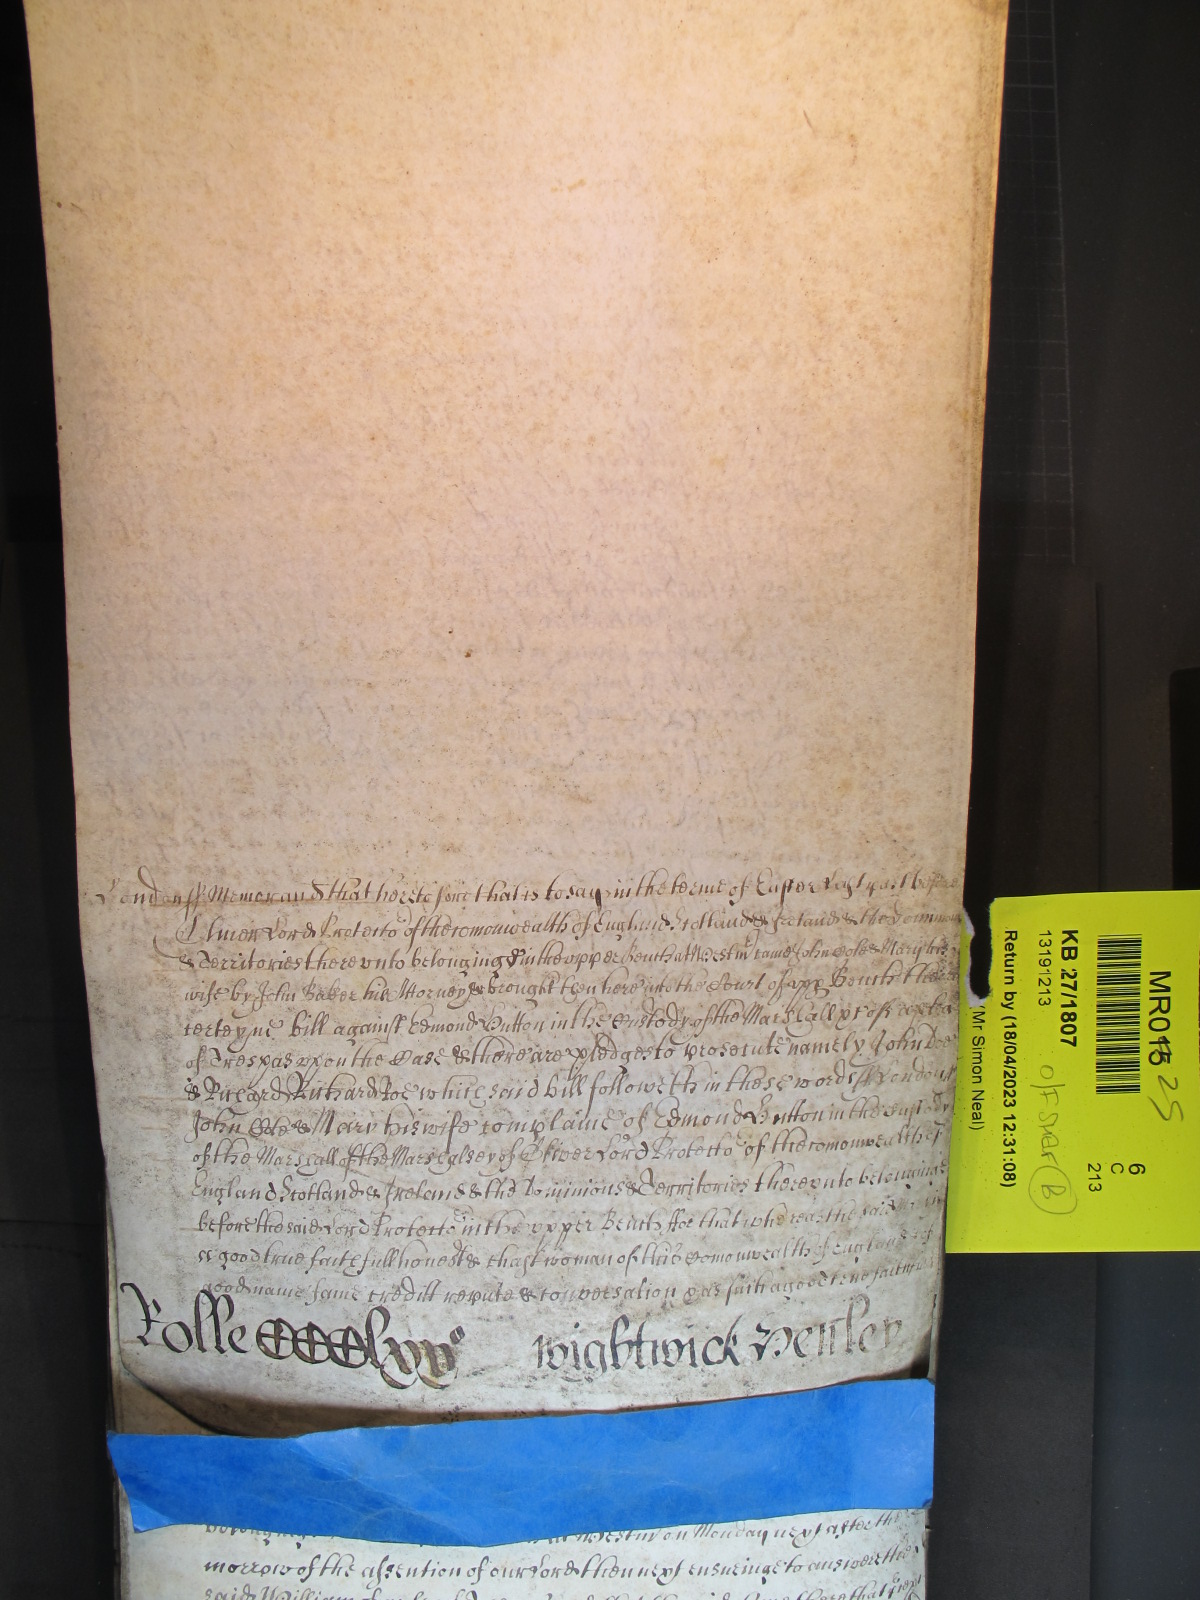 London ss Memorand that heretofore that is to say in the terme of Easter last past before
Oliver Lord Protector of the comonwealth of England Scotland & Ireland & the Dominions
& Territories thereunto belonging in the upper Bench at Westmr came John Cole & Mary his
wife by John Baker his Attorney & brought then here into the Court of upp Bench their
certeyne bill against Edmond Hutton in the Custody of the Marshall &c of
of Trespas upon the Case & there are pledges to prosecute namely John Doe
& Richard Richard Roe which said bill followeth in these words ss London
John Cole & Mary his wife complaine of Edmond Hutton in the custody
of the Marshall of the Marshalsey of Oliver Lord Protector of the comonwealth of
England Scotland & Ireland & the Dominions & Territories thereunto belonginge
before the said Lord Protector in the upper Bench ffor that whereas the said
a good true faithfull honest & chast woman of this Comonwealth of England
good name fame creditt repute & conversation as such a good true faithfull
Rolle CCClxv° Wightwick Henley
Westmr on Monday next after the
morrow of the assention of our Lord then next ensueinge to answere the
said William
MR018 25
6
C
213
KB 27/1807
13191213
offsner (B)
Return by (18/04/2023 12:31:08)
Mr Simon Neal)